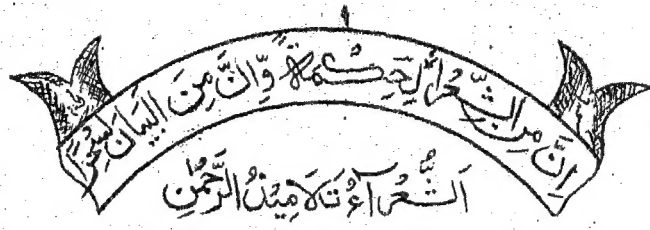 ١
اِنَّ مِنَ الشِّعْرِ لَحِكْمَةً وَّاِنَّ مِنَ الْبَيَانِ لَسِحْرًا
اَلشُّعَرَآءُ تَلَامِيْذُ الرَّحْمٰنِ